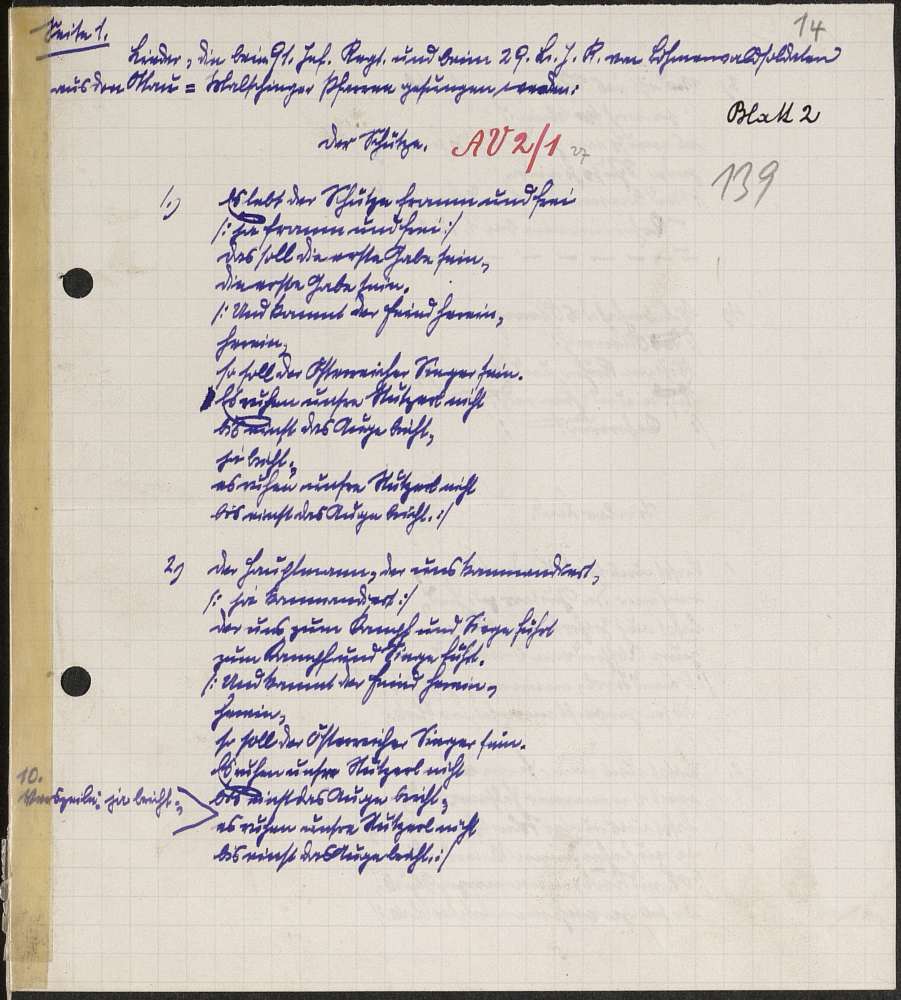 Seite 1.
14
Lieder, die beim 91. Inf. Regt. und beim 29. L. I. R. von Böhmerwaldsoldaten
aus den Mau = Malschinger Pfarren gesungen werden:
Blatt 2
Der Schütze. AV 2/1 27
139
1.) Es lebt der Schütze fromm und frei
/: ja fromm und frei :/
das soll die erste Gabe sein,
die erste Gabe sein.
/: Und kommt der Feind herein,
herein,
so soll der Österreicher Sieger sein.
Es ruhen unsre Stutzerl nicht
bis einst das Auge bricht,
ja bricht,
es ruhen unsre Stutzerl nicht
bis einst das Auge bricht. :/
2.) der Hauptmann, der uns kommandiert,
/: ja kommandiert :/
der uns zum Kampf und Siege führt
zum Kampf und Siege führt.
/: Und kommt der Feind herein,
herein,
so soll der Österreicher Sieger sein.
Es ruhen unsre Stutzerl nicht
bis einst das Auge bricht,
10.
Verszeile: ja bricht,
es ruhen unsre Stutzerl nicht
bis einst das Auge bricht. :/